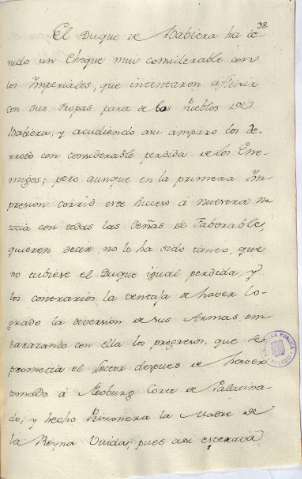 38
El Duque de Babiera ha te
nido un choque muy considerable con
los Imperiales, que intentaron
con sus tropas para de los Pueblos de
Babiera, y acudiendo a su amparo los de-
rrotó con considerable perdida de los Ene-
migos; pero aunque en la primera Im-
presion corrió este suceso à nuestra no-
ticia con todas las señas de Faborable,
quieren decir no lo ha sido tanto, que
no tubiese el Duque igual perdida y
los contrarios la ventaja de haver lo-
grado la diversion de sus Armas, em-
barazando con ella los progresos, que se
prometia el despues de haver
tomado à Neoburg Corte de Palatina-
do, y hecho Pricionera la Madre de
la Reyna Viuda; pues asi esperava